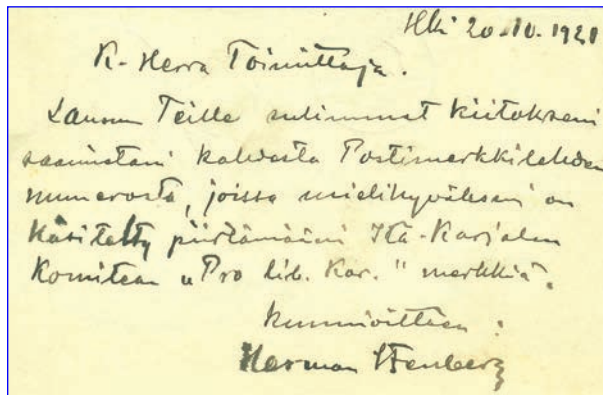 Hki 20-10.1921
K. Herra Toimittaja.
Lausun Teille sulimmat kiitokseni
saamistani kahdesta Postimerkkilehden
numerosta, joissa mielihyväkseni on
käsitelty piirtämääni Itä-Karjalan
Komitean "Pro lib. Kar." merkkiä.
Kunnioittaen:
Herman Stenberg